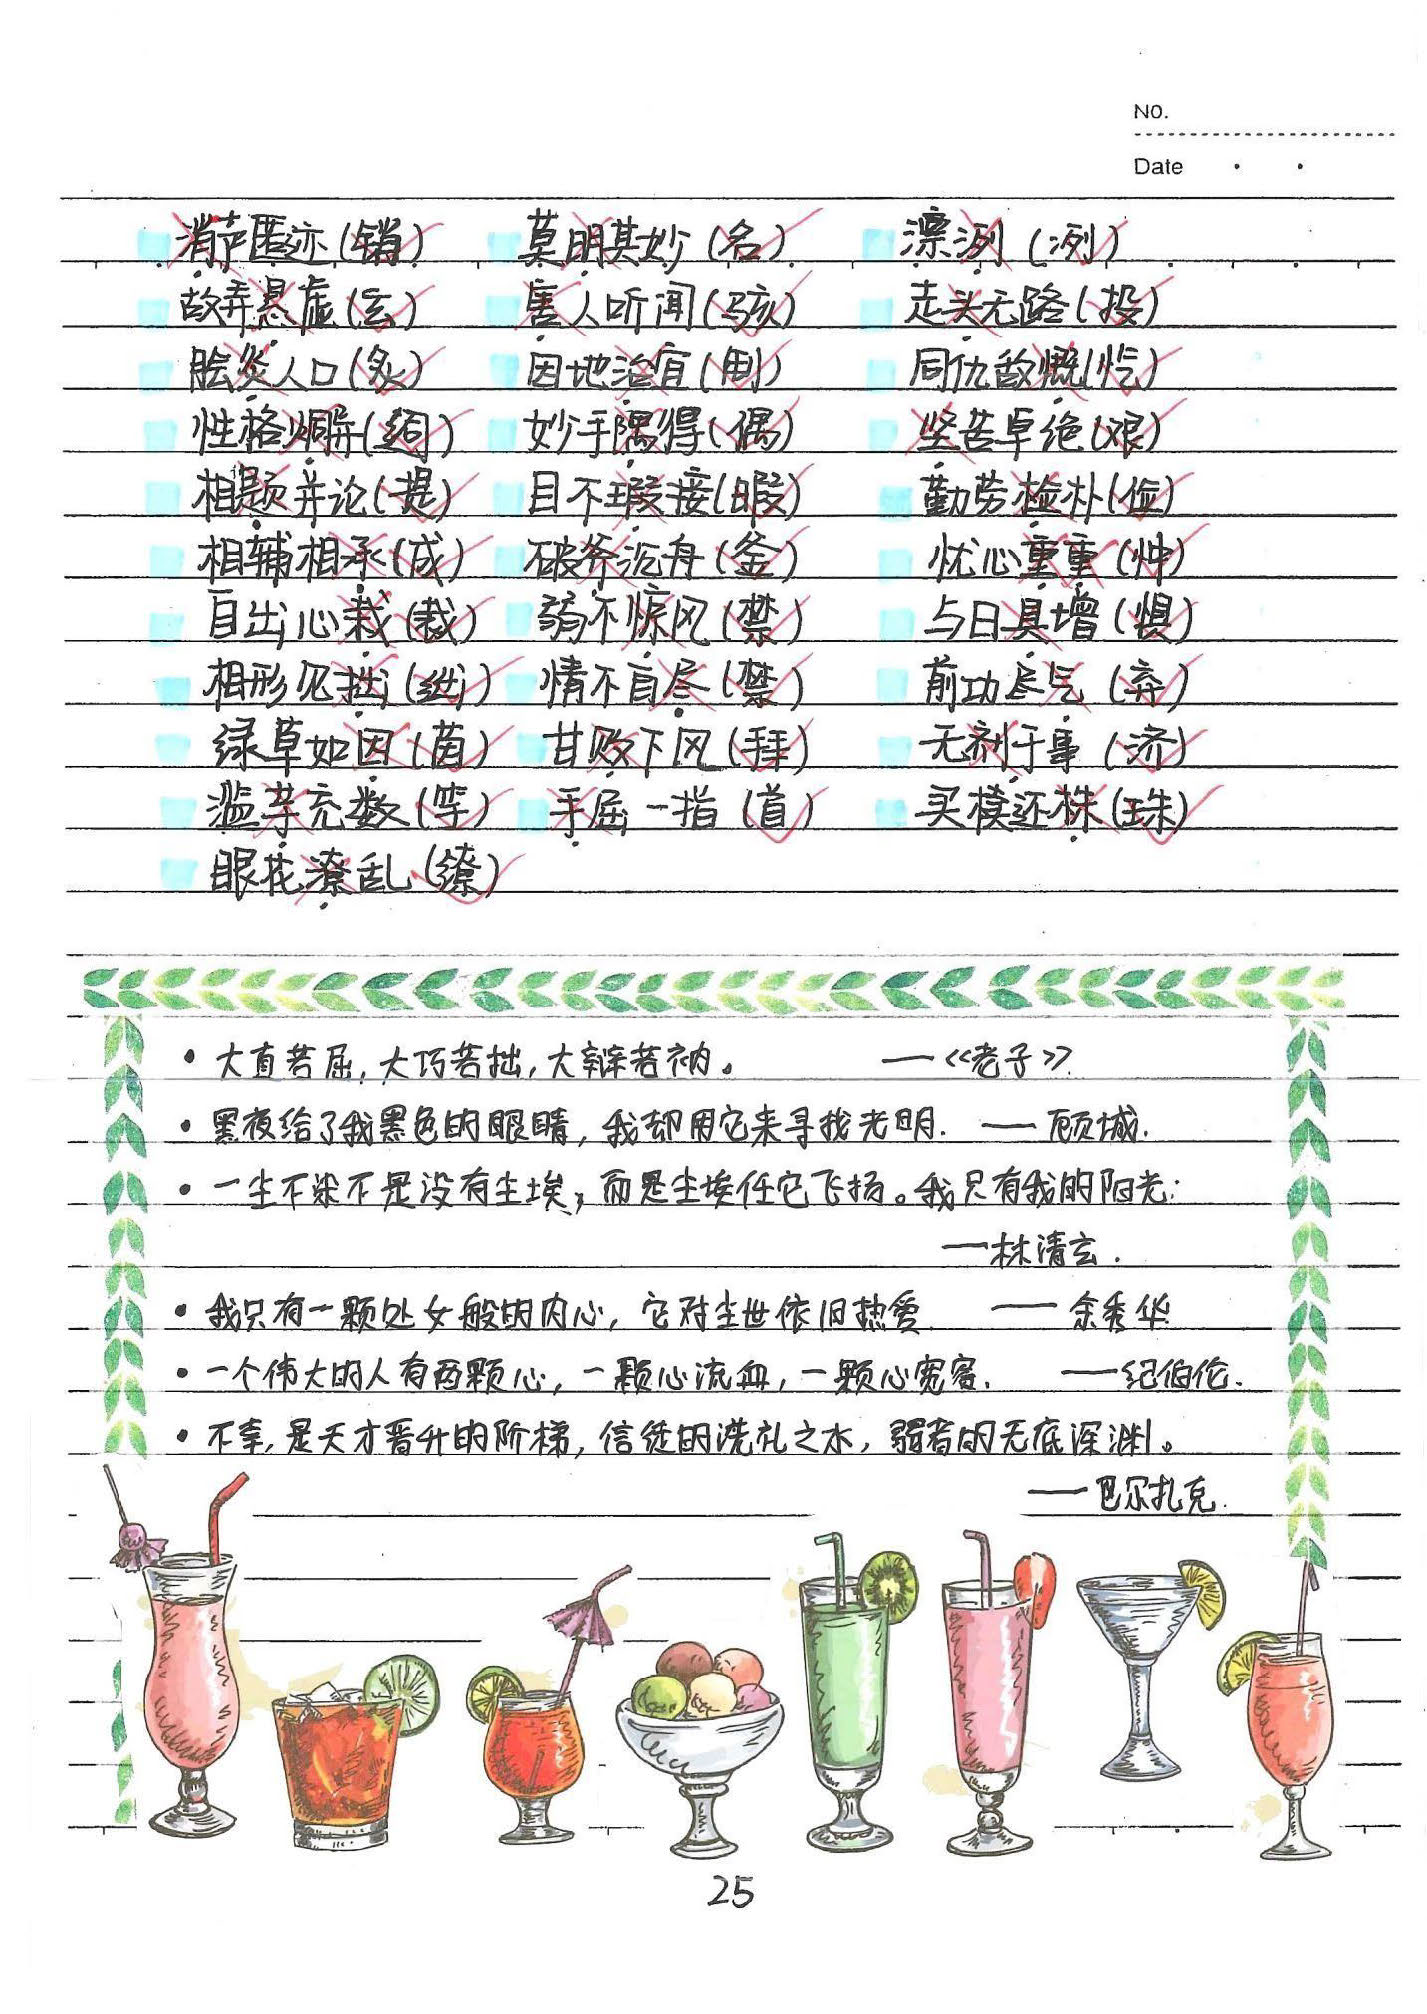 NO.
Date
消声匿迹(销) 莫明其妙(名) 漂洌(冽)
故弄悬虚(玄) 害人听闻(骇) 走头无路(投)
脍炎人口(炙) 因地治宜(制) 同仇敌慨(忾)
性格炯异(迥) 妙手隅得(偶) 坚苦卓绝(艰)
相题并论(提) 目不瑕接(暇) 勤劳检朴(俭)
相辅相承(成) 破斧沉舟(釜) 忧心重重(忡)
自出心栽(裁) 弱不惊风(禁) 与日具增(惧)
相形见拙(绌) 情不自尽(禁) 前功尽气(弃)
绿草如因(茵) 甘败下风(拜) 无剂于事(济)
滥芋充数(竽) 手屈一指(首) 买椟还株(珠)
眼花潦乱(缭)
• 大直若屈,大巧若拙,大辩若讷。 —《老子》
• 黑夜给了我黑色的眼睛,我却用它来寻找光明. —顾城.
• 一尘不染不是没有尘埃,而是尘埃任它飞扬。我只有我的阳光;
—林清玄.
• 我只有一颗处女般的内心,它对尘世依旧热爱 —余秀华
• 一个伟大的人有两颗心,一颗心流血,一颗心宽容. —纪伯伦.
• 不幸,是天才晋升的阶梯,信徒的洗礼之水,弱者的无底深渊。
—巴尔扎克.
25